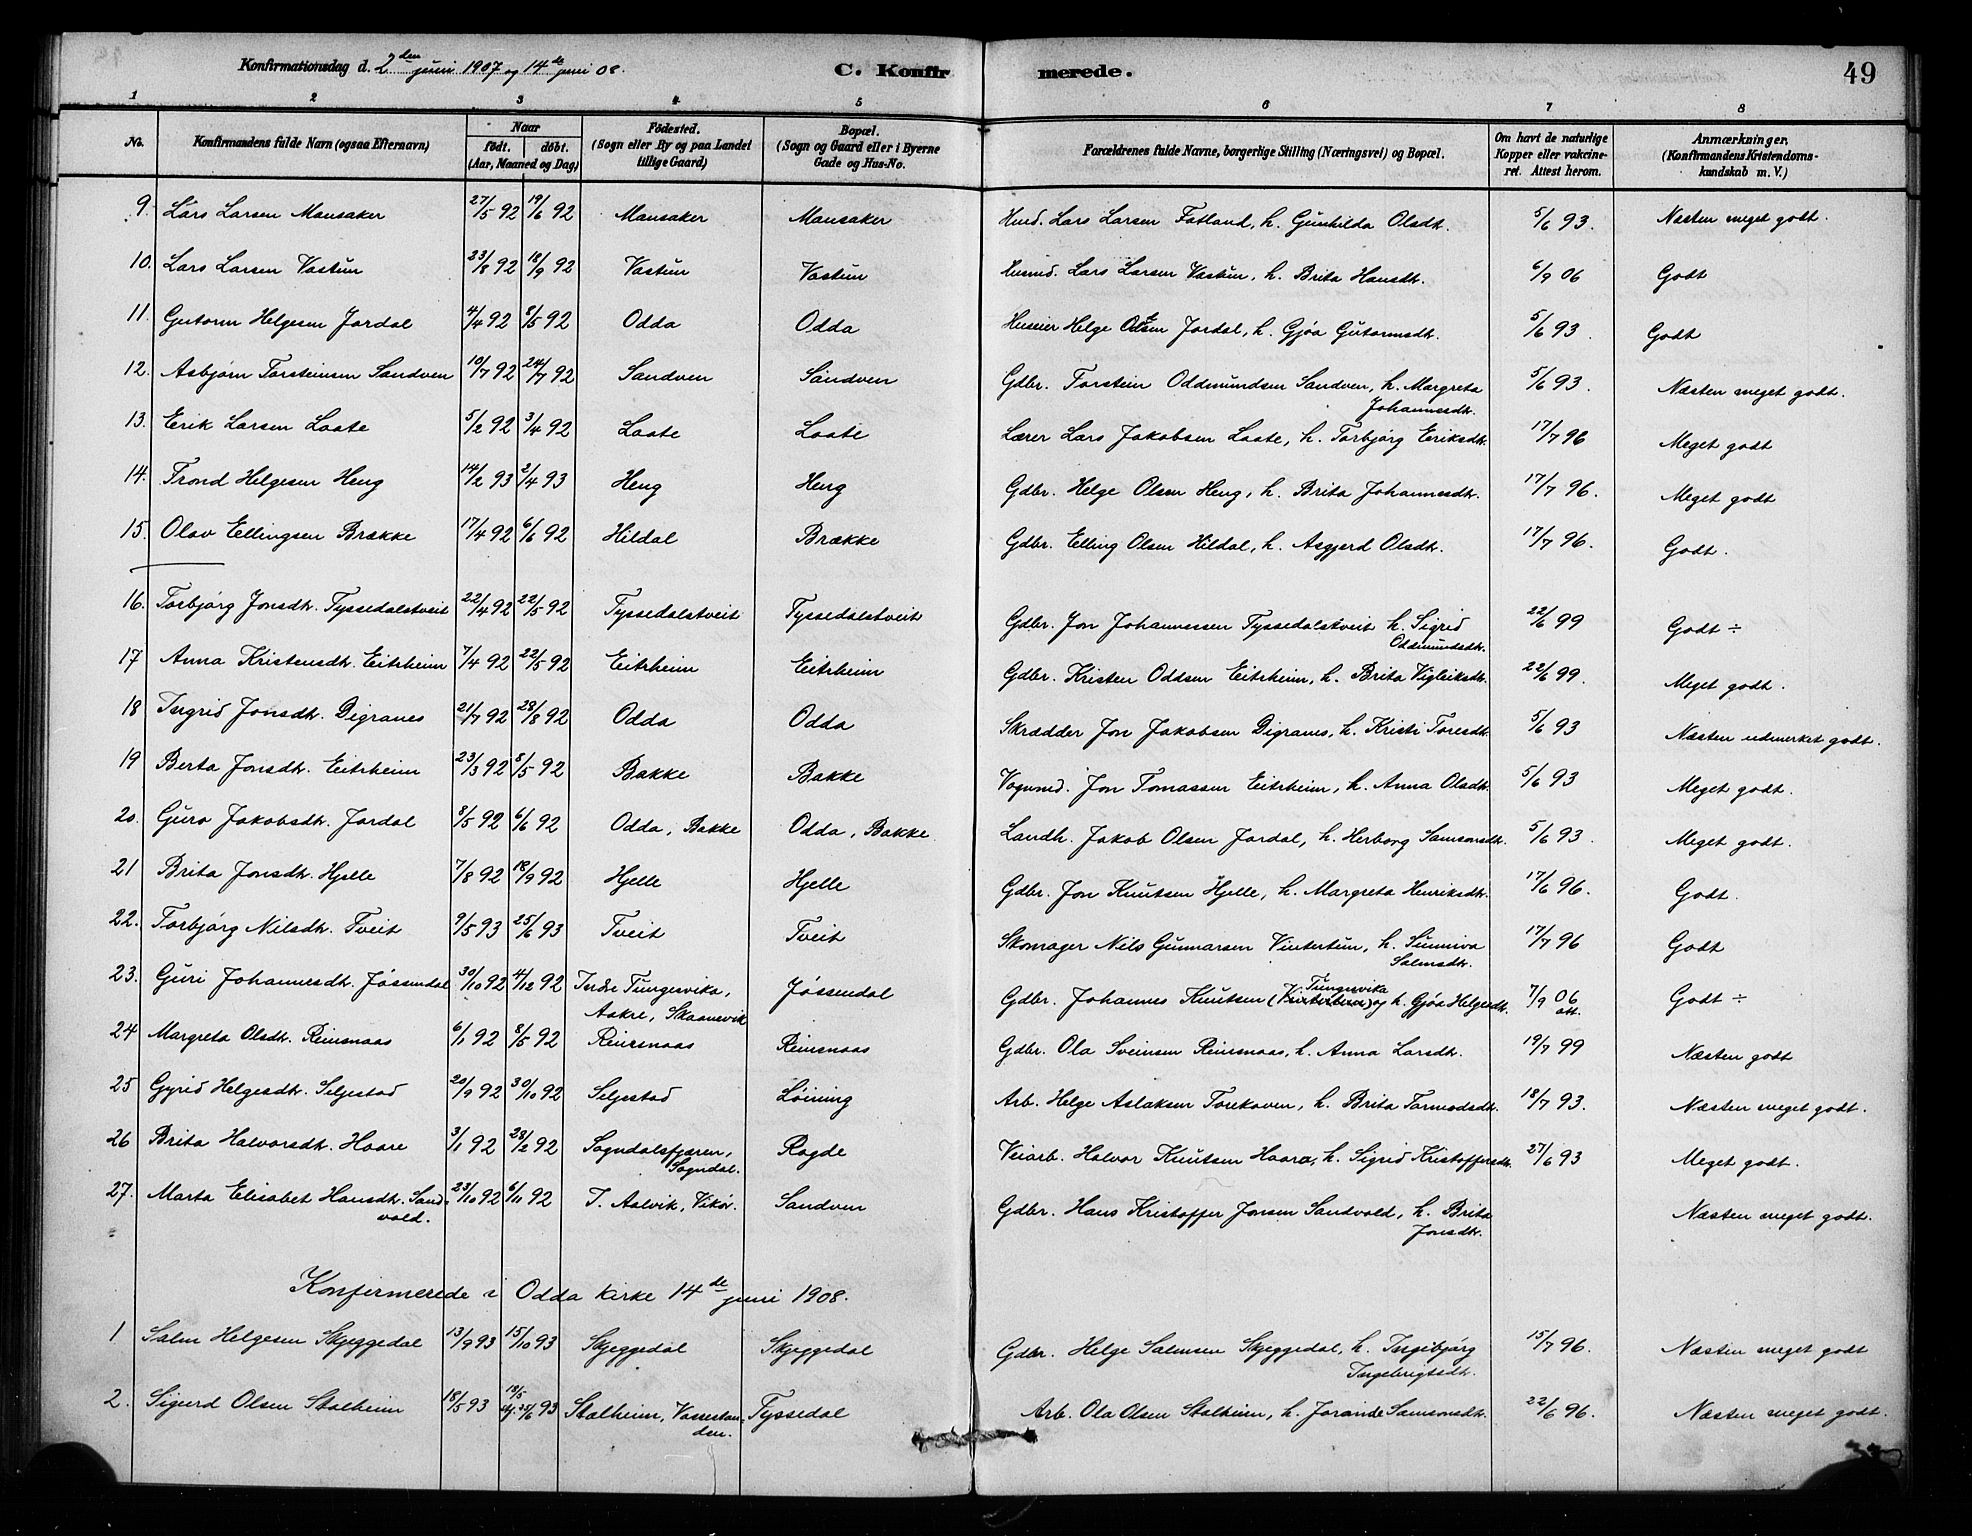 Konfirmationsdag d. 2den juni 1907 og 14de juni 08.
C. Konfirmerede.
49
1 2 3 4 5 6 7 8
No. Konfirmandens fulde Navn (ogsaa Efternavn) Naar født. døbt. (Aar, Maaned og Dag) Fødested. (Sogn eller By og paa Landet tillige Gaard) Bopæl. (Sogn og Gaard eller i Byerne Gade og Hus-No. Forældrenes fulde Navne, borgerlige Stilling (Næringsvei) og Bopæl. Om havt de naturlige Kopper eller vakcineret. Attest herom. Anmærkninger, (Konfirmandens Kristendomskundskab m. V.)
9. Lars Larsen Mansaker 27/5 92 19/6 92 Mansaker Mansaker Husd. Lars Larsen Fatland, h. Gunhilda Olsdt. 5/6 93. Næsten meget godt.
10. Lars Larsen Vastun 23/8 92 18/9 92 Vastun Vastun Husmd. Lars Larsen Vastun, h. Brita Hansdt. 6/9 06 Godt
11. Gutorm Helgesen Jordal 4/4 92 8/5 92 Odda Odda Huseier Helge Olsen Jordal, h. Gjøa Gutormsdt. 5/6 93. Godt
12. Asbjørn Torsteinsen Sandven 10/7 92 24/7 92 Sandven Sandven Gdbr. Torstein Oddmundsen Sandven, h. Margreta Johannesdt. 5/6 93. Næsten meget godt.
13. Erik Larsen Laate 5/2 92 3/4 92 Laate Laate Lærer Lars Jakobsen Laate, h. Torbjørg Eriksdt. 17/7 96 Meget godt
14. Trond Helgesen Heng 14/2 93 2/4 93 Heng Heng Gdbr. Helge Olsen Heng, h. Brita Johannesdt. 17/7 96. Meget godt
15. Olav Ellingsen Brække 17/4 92 6/6 92 Hildal Brække Gdbr. Elling Olsen Hildal, h. Asgjerd Olsdt. 17/7 96. Godt.
16. Torbjørg Jonsdt. Tyssedalstveit 22/4 92 22/5 92 Tyssedalstveit Tyssedalstveit Gdbr. Jon Johannessen Tyssedalstveit h. Sigrid Oddmundsdt. 22/6 99 Godt ÷
17 Anna Kristensdt. Eitrheim 7/4 92 22/5 92 Eitrheim Eitrheim Gdbr. Kristen Oddsen Eitrheim, h. Brita Vigleiksdt. 22/6 99. Meget godt.
18 Ingrid Jonsdt. Digranes 21/7 92 28/8 92 Odda Odda Skrædder Jon Jakobsen Digranes, h. Kristi Toresdt. 5/6 93 Næsten udmerket godt.
19 Berta Jonsdt. Eitrheim 23/3 92 8/5 92 Bakke Bakke Vognmd. Jon Tomassen Eitrheim, h. Anna Olsdt. 5/6 93 Meget godt.
20. Guro Jakobsdt. Jordal 8/5 92 6/6 92 Odda, Bakke Odda, Bakke. Landh. Jakob Olsen Jordal, h. Herborg Samsonsdt. 5/6 93. Meget godt.
21 Brita Jonsdt. Hjelle 7/8 92 18/9 92 Hjelle Hjelle Gdbr. Jon Knutsen Hjelle, h. Margreta Henriksdt. 17/6 96. Godt.
22. Torbjørg Nilsdt. Tveit 9/5 93 25/6 93 Tveit Tveit Skomager Nils Gunnarsen Vintertun, h. Sunniva Salmsdt. 17/7 96 Godt
23. Guri Johannesdt. Jøssendal 30/10 92 4/12 92 Indre Tungesvika, Aakre, Skaanevik Jøssendal Gdbr. Johannes Knutsen Tungesvika og h. Gjøa Helgesdt. 7/9 06 att. Godt ÷
24 Margreta Olsdt. Reinsnaas 6/1 92 8/5 92 Reinsnaas Reinsnaas Gdbr. Ola Sveinsen Reinsnaas, h. Anna Larsdt. 19/7 99 Næsten godt
25 Gyrid Helgesdt. Seljestad 20/9 92 30/10 92 Seljestad Løining Arb. Helge Aslaksen Torekoven, h. Brita Tormodsdt. 18/7 93. Næsten meget godt.
26 Brita Halvorsdt. Haare 3/1 92 28/2 92 Sogndalsfjæren, Sogndal. Ragde Veiarb. Halvor Knutsen Haara, h. Sigrid Kristoffersdt. 27/6 93 Meget godt.
27. Marta Elisabet Hansdt. Sandvold. 23/10 92 6/11 92 I. Aalvik, Vikør. Sandven Gdbr. Hans Kristoffer Jonsen Sandvold, h. Brita Jonsdt. Næsten meget godt.
Konfirmerede i Odda kirke 14de juni 1908.
1 Salm Helgesen Skjeggedal 13/9 93 15/10 93 Skjeggedal Skjeggedal Gdbr. Helge Salmsen Skjeggedal, h. Ingebjørg Ingebrigtsdt. 15/7 96. Næsten meget godt
2. Sigurd Olsen Stalheim 18/5 93 18/5 25/6 93 Stalheim, Vossestranden. Tyssedal Arb. Ola Olsen Stalheim, h. Jorande Samsonsdt. 22/6 96. Næsten meget godt.